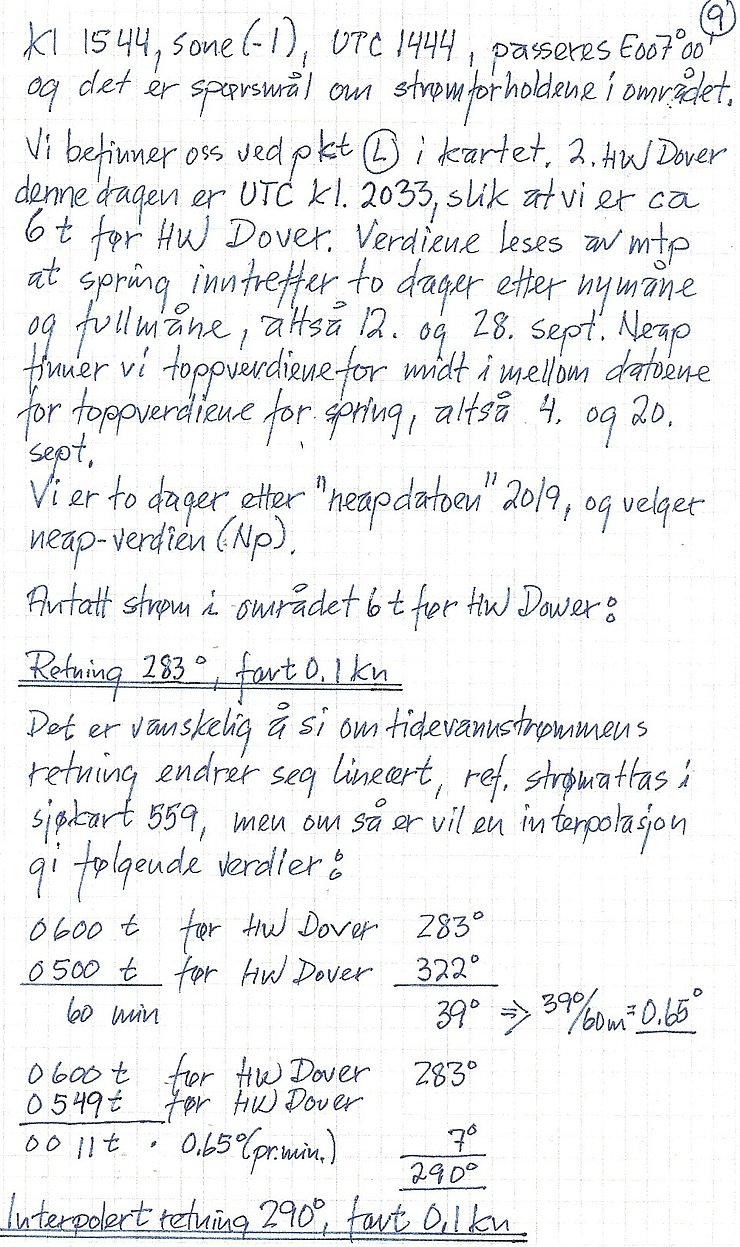 9
Kl 1544, sone (-1), UTC 1444, passeres E007°00'
og det er spørsmål om strømforholdene i området.
Vi befinner oss ved pkt L i kartet. 2. HW Dover
denne dagen er UTC kl. 2033, slik at vi er ca
6 t før HW Dover. Verdiene leses av mtp
at spring inntreffer to dager etter nymåne
og fullmåne, altså 12. og 28. sept. Neap
finner vi toppverdiene for midt i mellom datoene
for toppverdiene for spring, altså 4. og 20.
sept.
Vi er to dager etter "neapdatoen" 20/9, og velger
neap-verdien (Np).
Antatt strøm i området 6 t før HW Dower:
Retning 283°, fart 0.1 kn
Det er vanskelig å si om tidevannstrømmens
retning endrer seg lineært, ref. strømatlas i
sjøkart 559, men om så er vil en interpolasjon
gi følgende verdier:
0600 t før HW Dover 283°
0500 t før HW Dover 322°
60 min 39° => 39°/60m = 0.65°
0600 t før HW Dover 283°
0549 t før HW Dover
0011 t · 0.65° (pr.min.) 7°
290°
Interpolert retning 290°, fart 0,1 kn